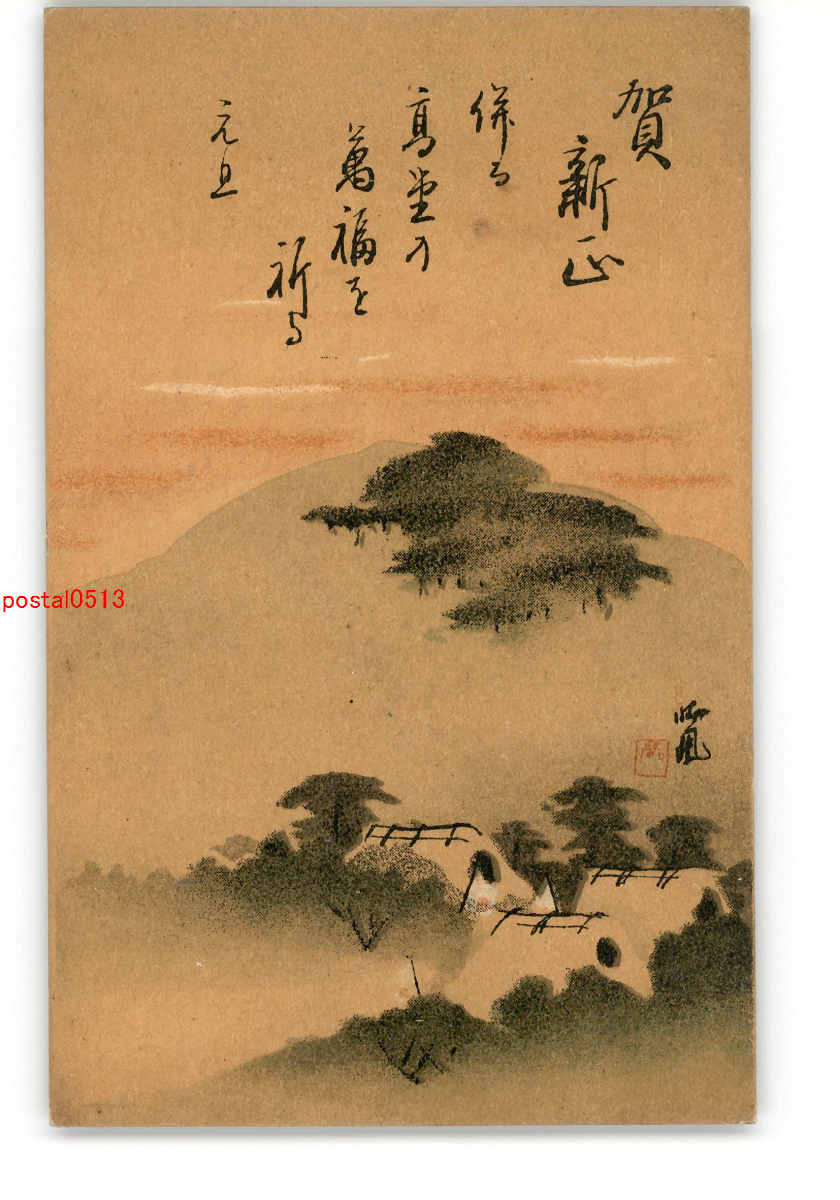 賀
新正
併る
高堂の
萬福を
祈る
元旦
postal0513